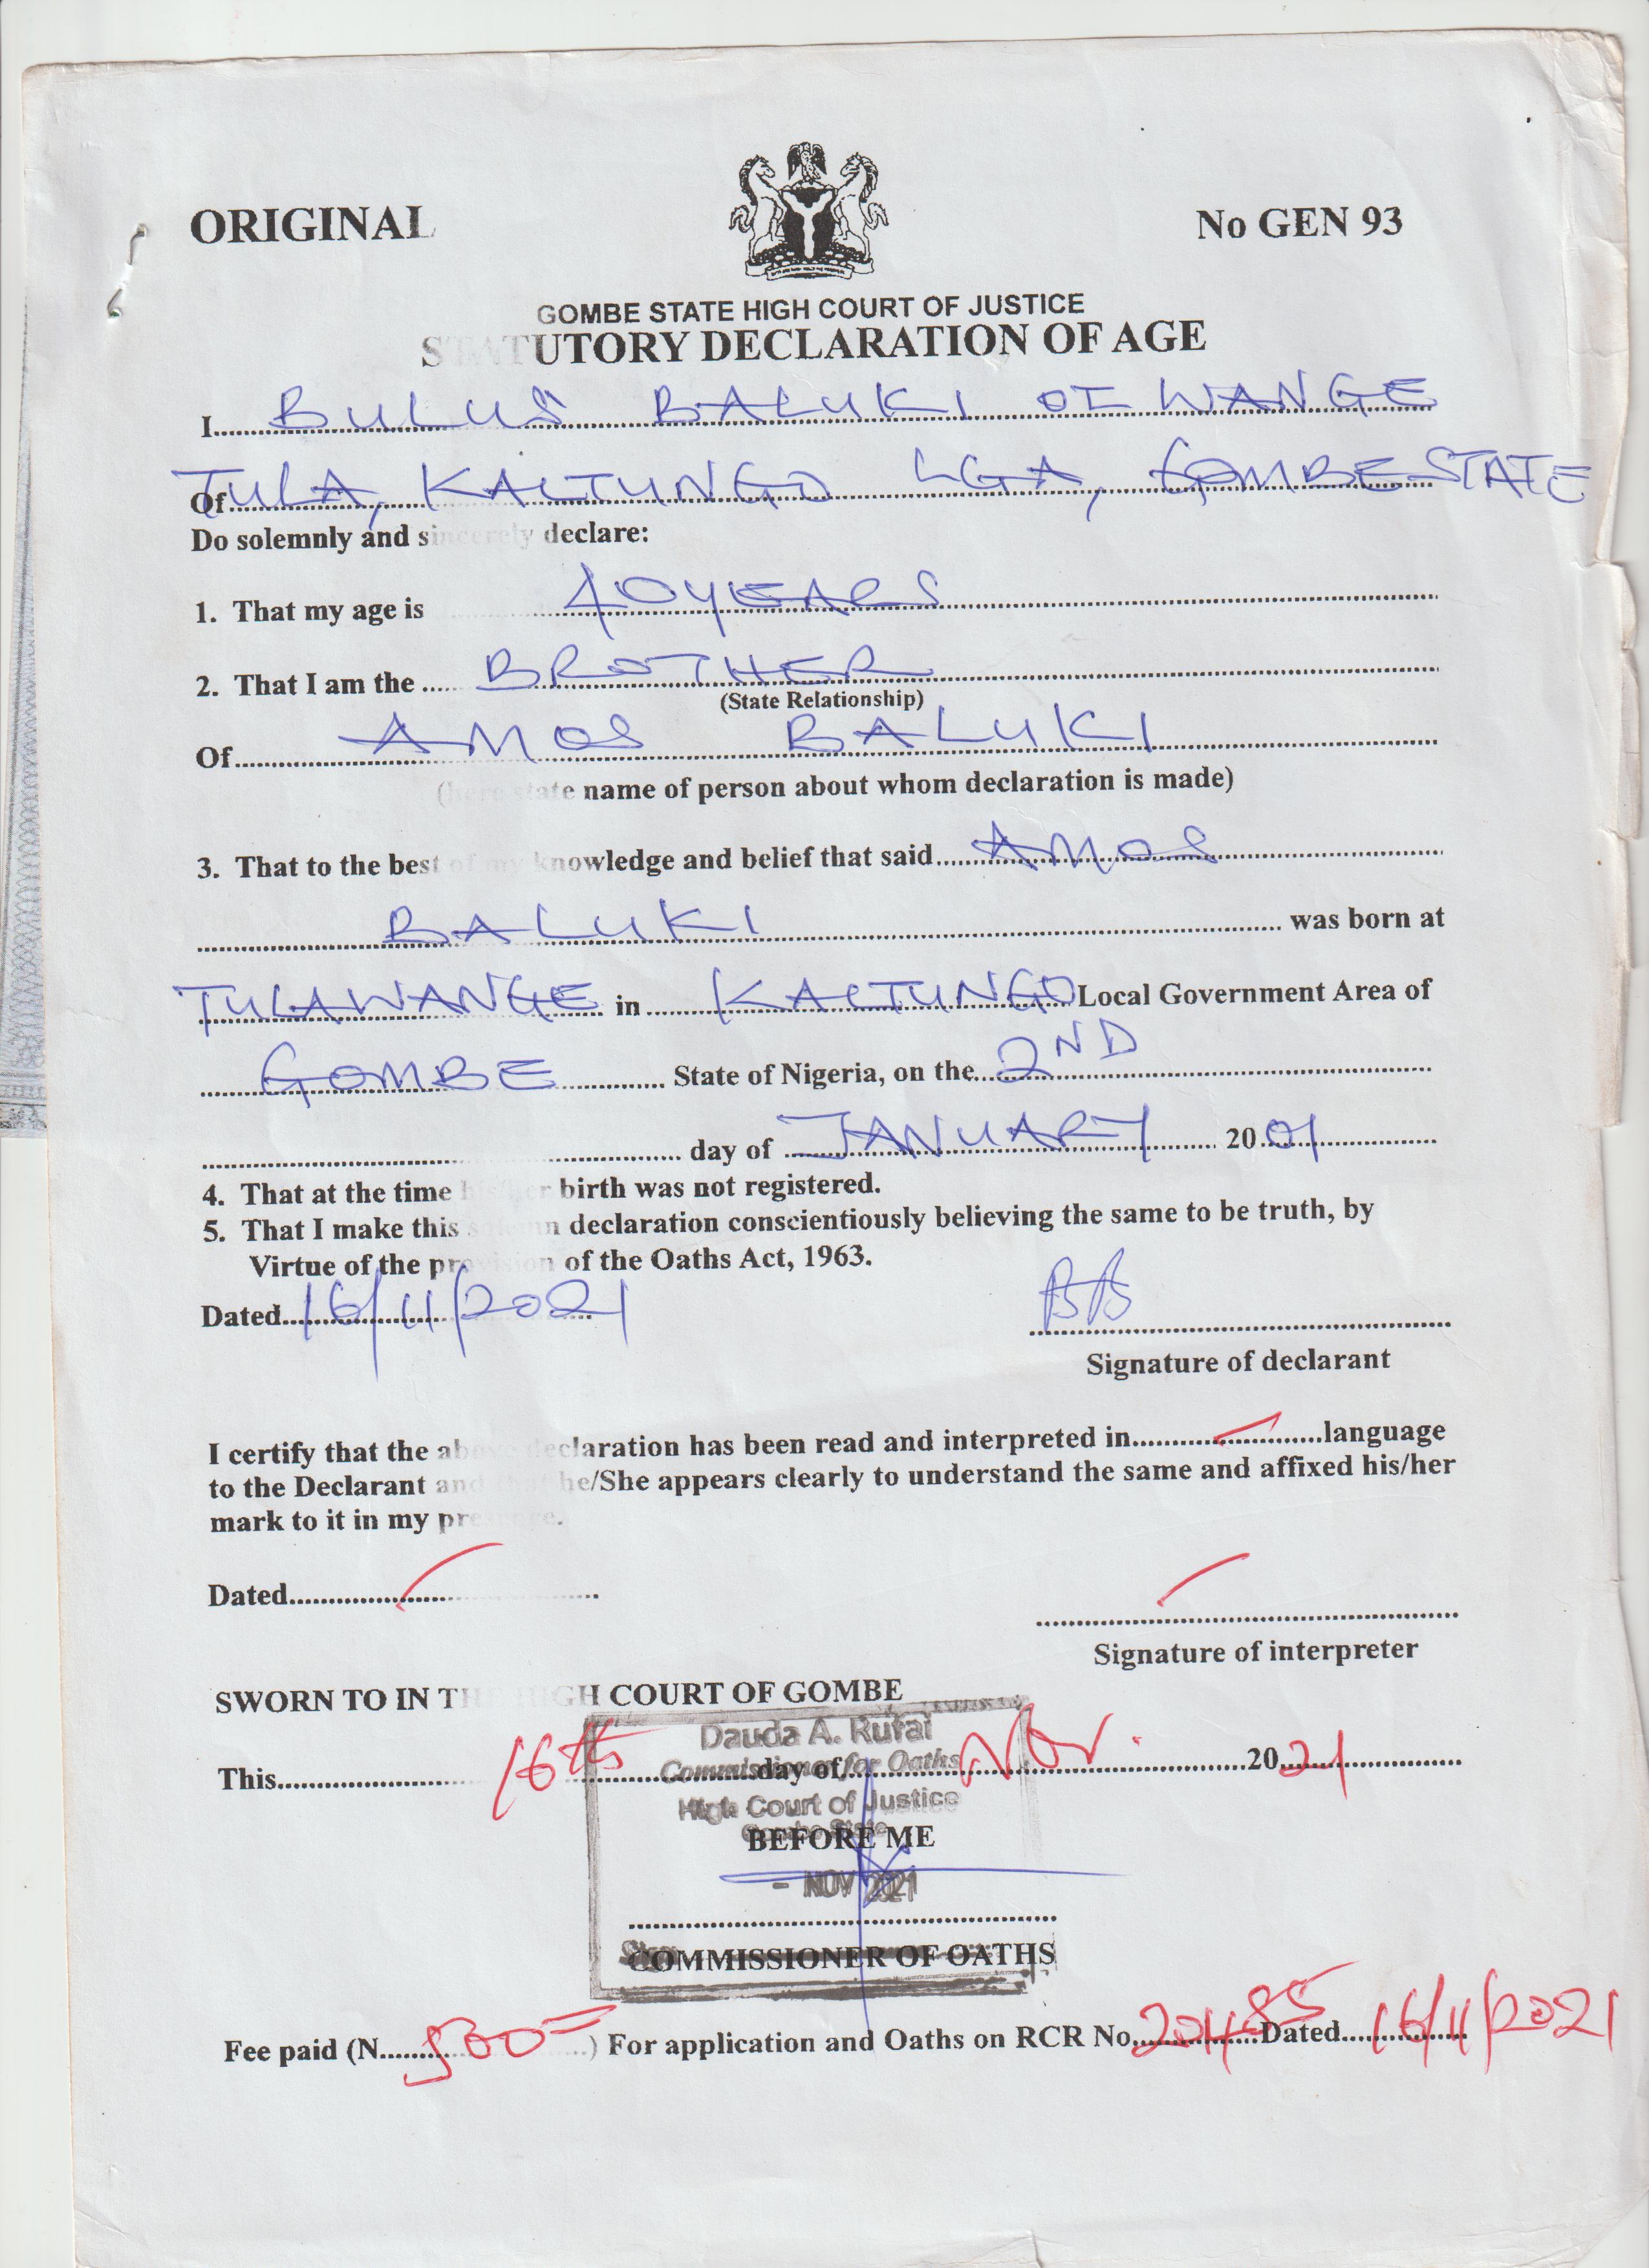 ORIGINAL No GEN 93
GOMBE STATE HIGH COURT OF JUSTICE
STATUTORY DECLARATION OF AGE
I BULUS BALUKI OF WANGE
Of TULA, KALTUNGO LGA, GOMBE STATE
Do solemnly and sincerely declare:
1. That my age is 40 YEARS
2. That I am the BROTHER
(State Relationship)
Of AMOS BALUKI
(here state name of person about whom declaration is made)
3. That to the best of my knowledge and belief that said AMOS
BALUKI was born at
TULA WANGE in KALTUNGO Local Government Area of
GOMBE State of Nigeria, on the 2ND
day of JANUARY 2001
4. That at the time his/her birth was not registered.
5. That I make this solemn declaration conscientiously believing the same to be truth, by
Virtue of the provision of the Oaths Act, 1963.
Dated 16/11/2021 BB
Signature of declarant
I certify that the above declaration has been read and interpreted in language
to the Declarant and that he/She appears clearly to understand the same and affixed his/her
mark to it in my presence.
Dated
Signature of interpreter
SWORN TO IN THE HIGH COURT OF GOMBE
Dauda A. Rufai
Commissioner for Oaths
This 16th day of Nov. 2021
High Court of Justice
Gombe State
BEFORE ME
- NOV 2021
COMMISSIONER OF OATHS
Fee paid (N 500=) For application and Oaths on RCR No 201485 Dated 16/11/2021